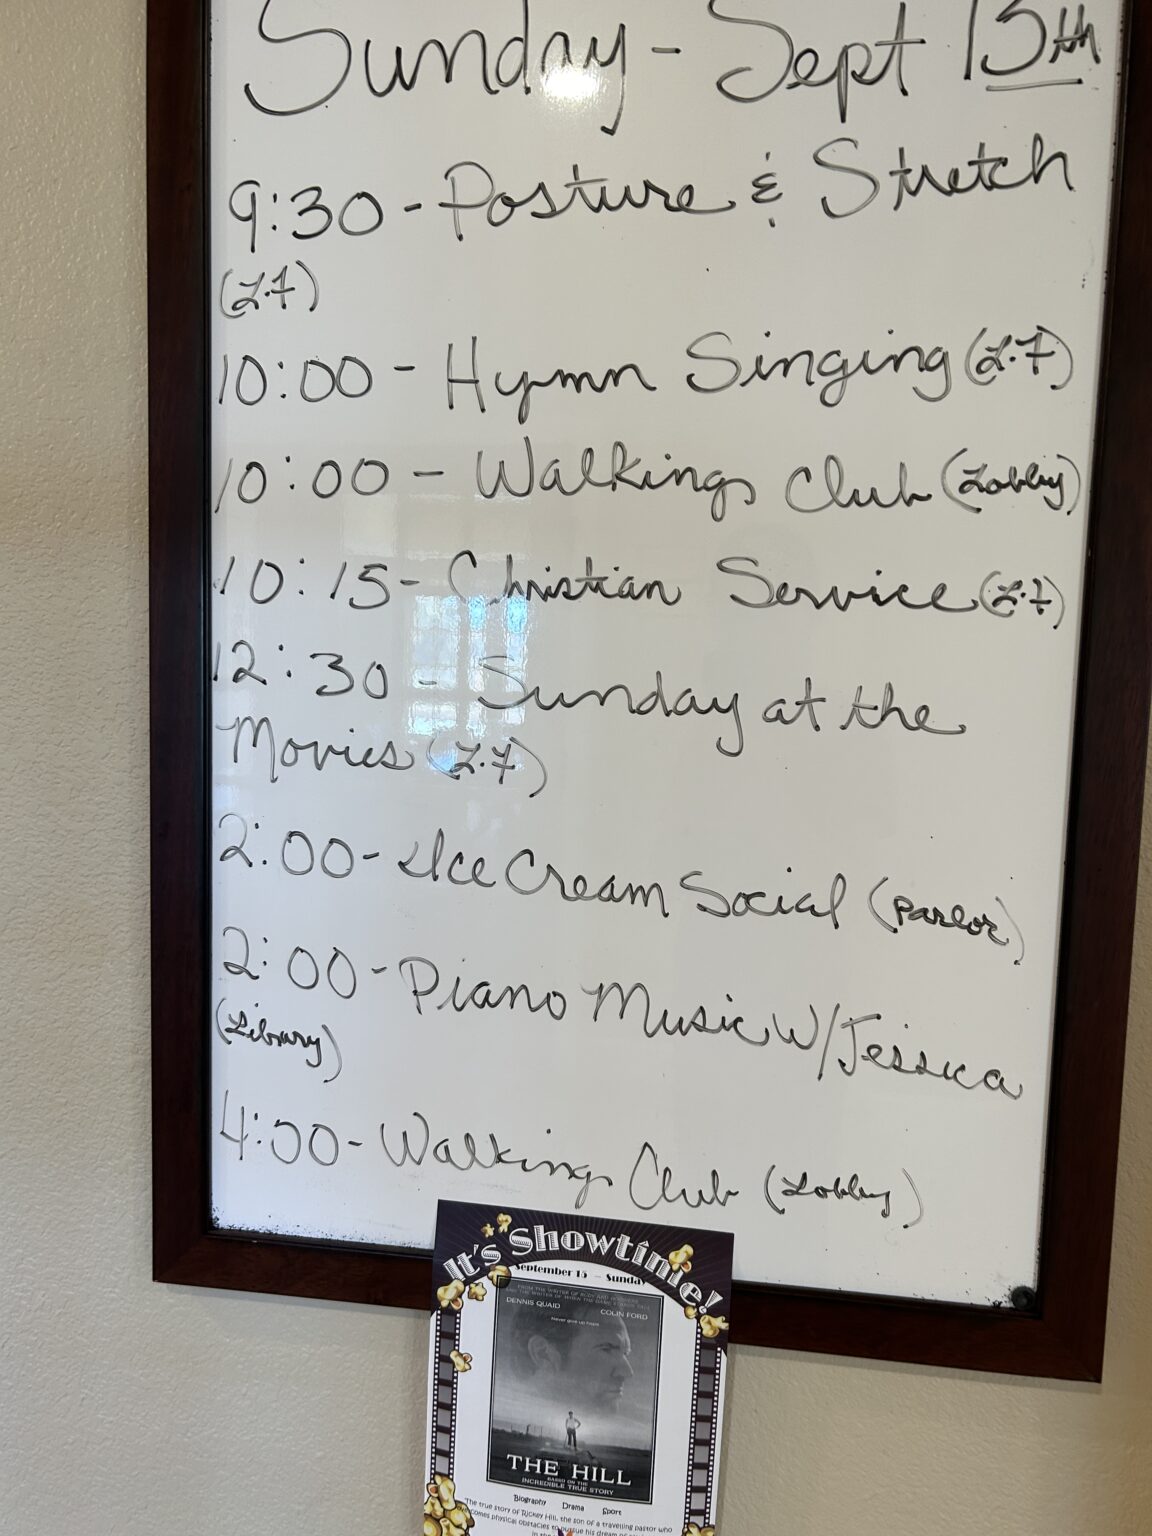 Sunday - Sept 15th
9:30 - Posture & Stretch
(L.F)
10:00 - Hymn Singing (L.F)
10:00 - Walkings Club (Lobby)
10:15 - Christian Service (L.F)
12:30 - Sunday at the
Movies (L.F)
2:00 - Ice Cream Social (Parlor)
2:00 - Piano Music W/Jessica
(Library)
4:00 - Walkings Club (Lobby)
It's Showtime!
September 15 - Sunday
FROM THE WRITER OF RUDY AND HOOSIERS
AND THE WRITER OF WHEN THE GAME STANDS TALL
DENNIS QUAID COLIN FORD
Never give up hope.
THE HILL
BASED ON THE
INCREDIBLE TRUE STORY
Biography Drama Sport
The true story of Rickey Hill, the son of a travelling pastor who
comes physical obstacles to pursue his dream of